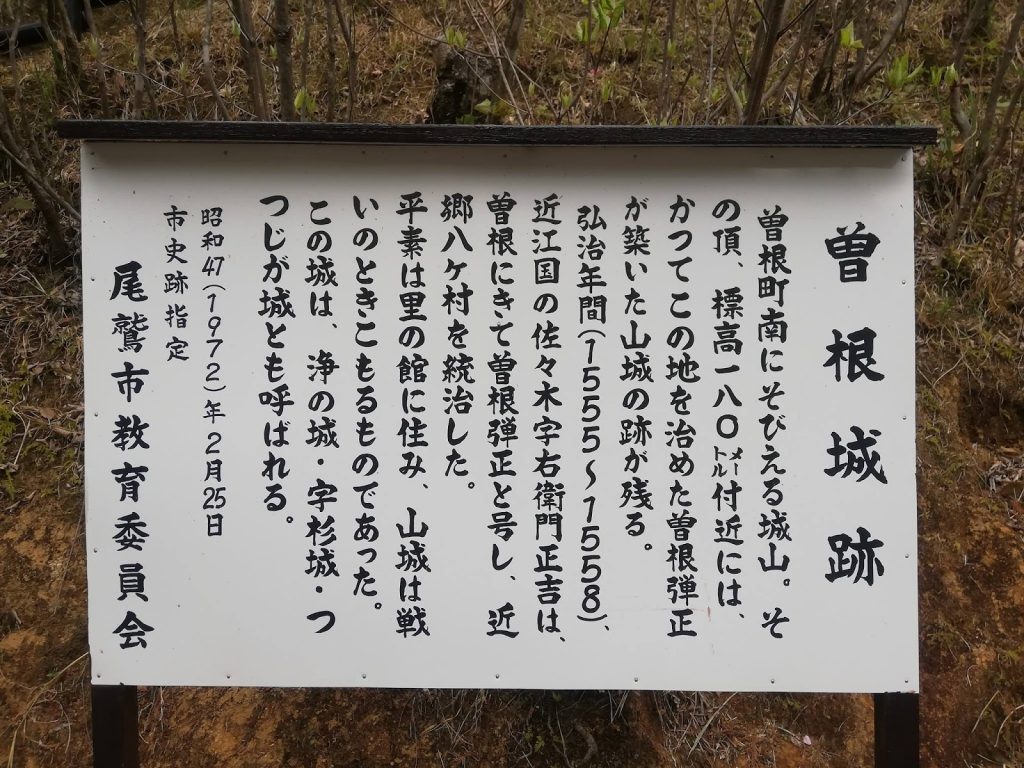 曽根城跡
曽根町南にそびえる城山。そ
の頂、標高一八〇メートル付近には、
かつてこの地を治めた曽根弾正
が築いた山城の跡が残る。
弘治年間(1555～1558)、
近江国の佐々木宇右衛門正吉は、
曽根にきて曽根弾正と号し、近
郷八ケ村を統治した。
平素は里の館に住み、山城は戦
いのときこもるものであった。
この城は、浄の城・字杉城・つ
つじが城とも呼ばれる。
昭和47(1972)年2月25日
市史跡指定
尾鷲市教育委員会